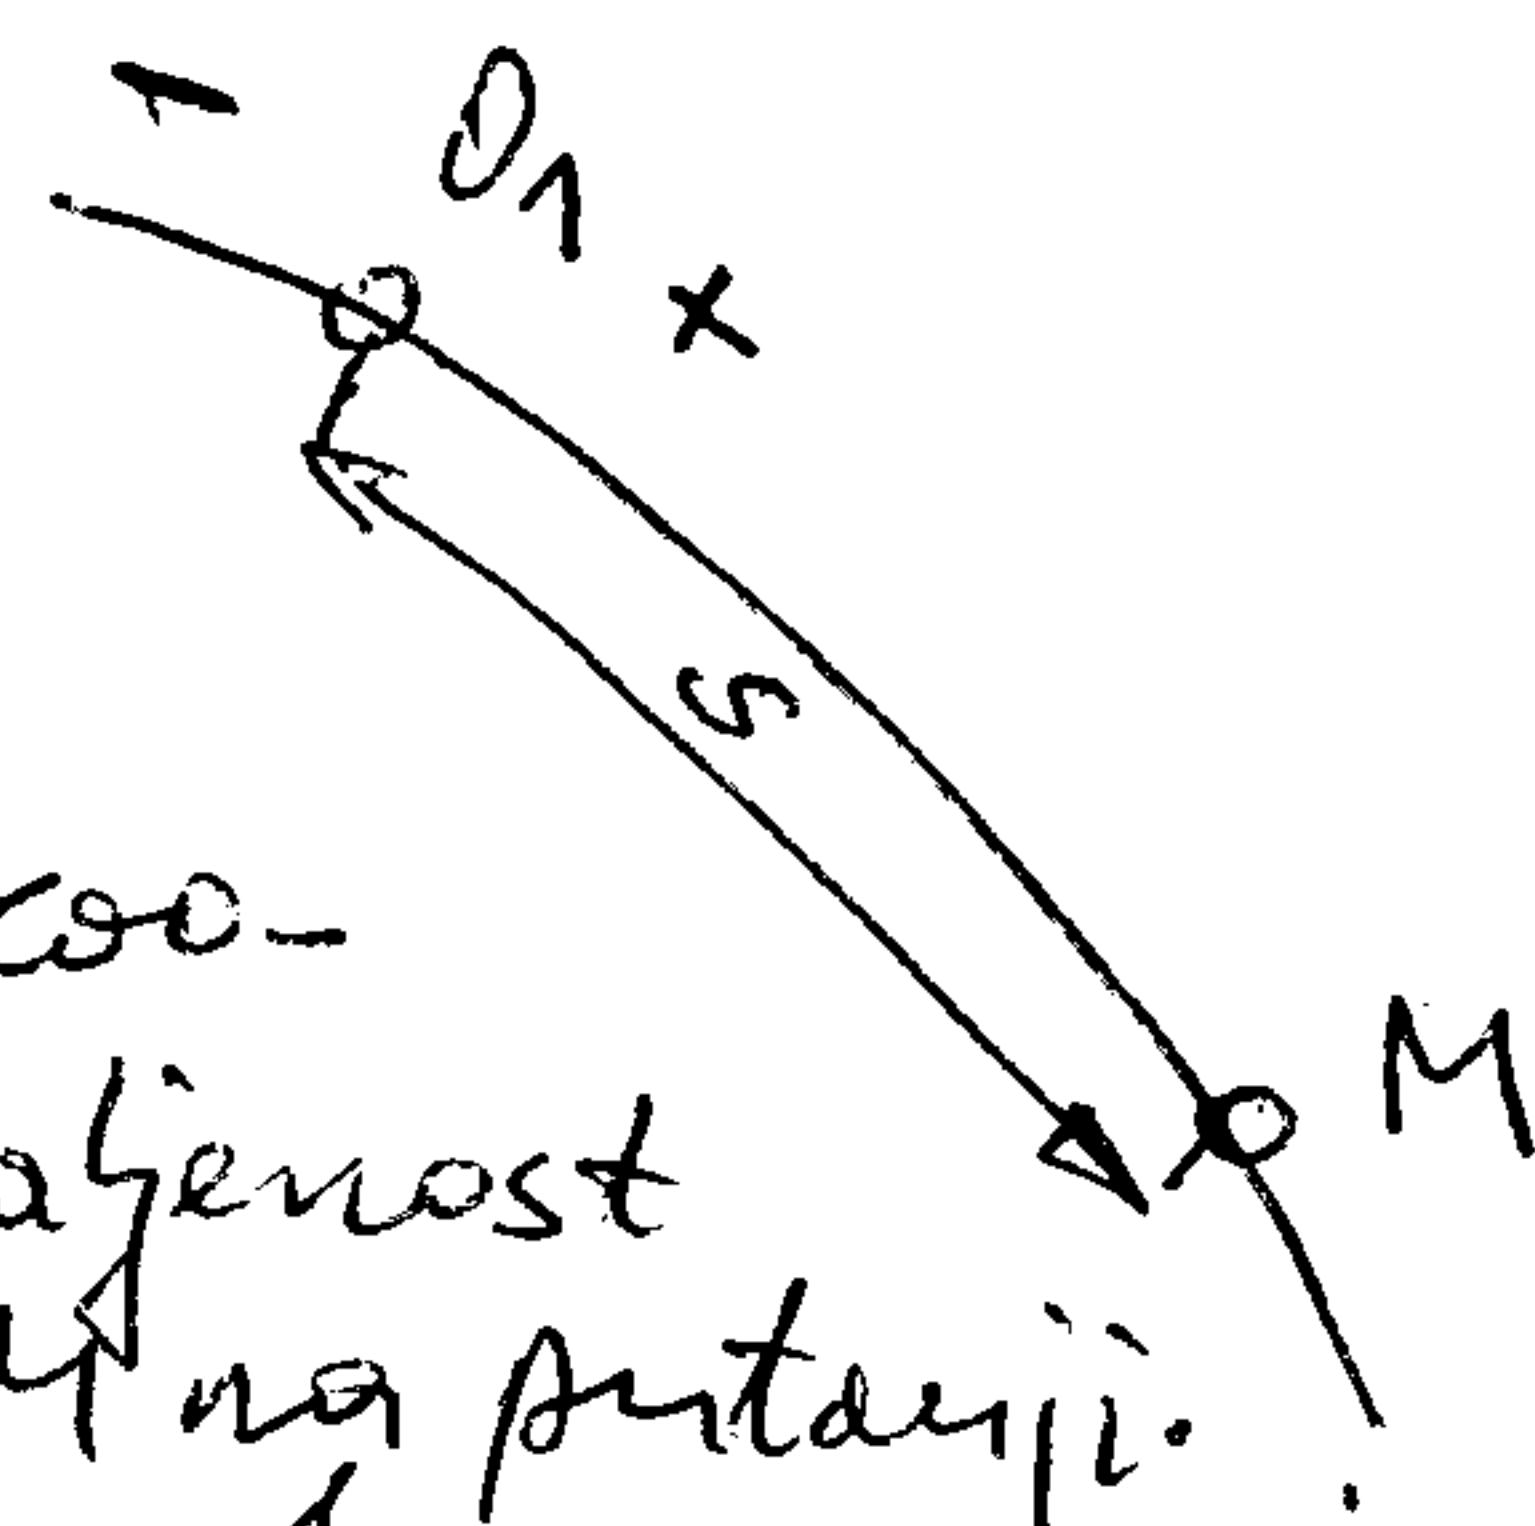 - O₁ +
S
coo-
aljenost
M
M na putanji.